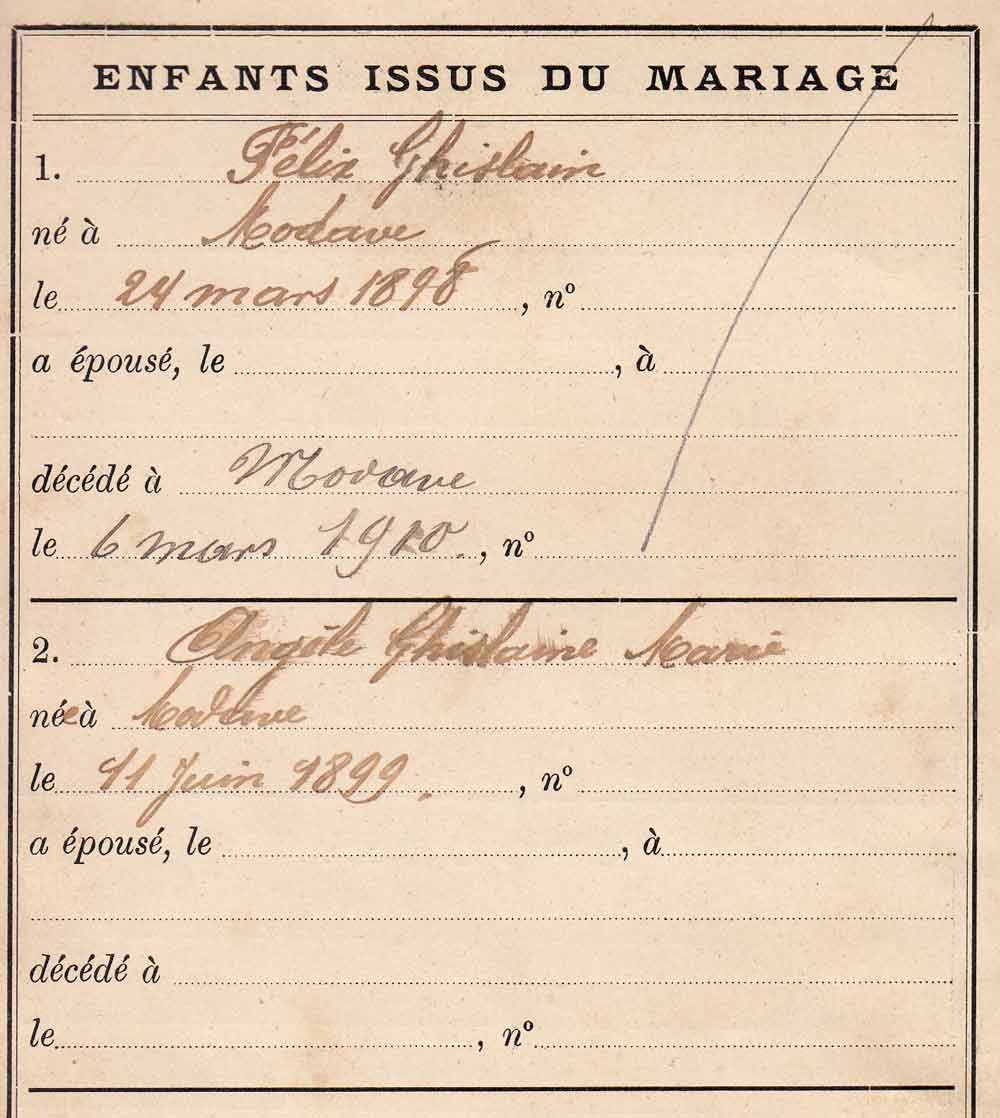 ENFANTS ISSUS DU MARIAGE
1. Félix Ghislain
né à Modave
le 24 mars 1898, nº
a épousé, le , à
décédé à Modave
le 6 mars 1910., nº
2. Angèle Ghislaine Marie
née à Modave
le 11 Juin 1899., nº
a épousé, le , à
décédé à
le , nº